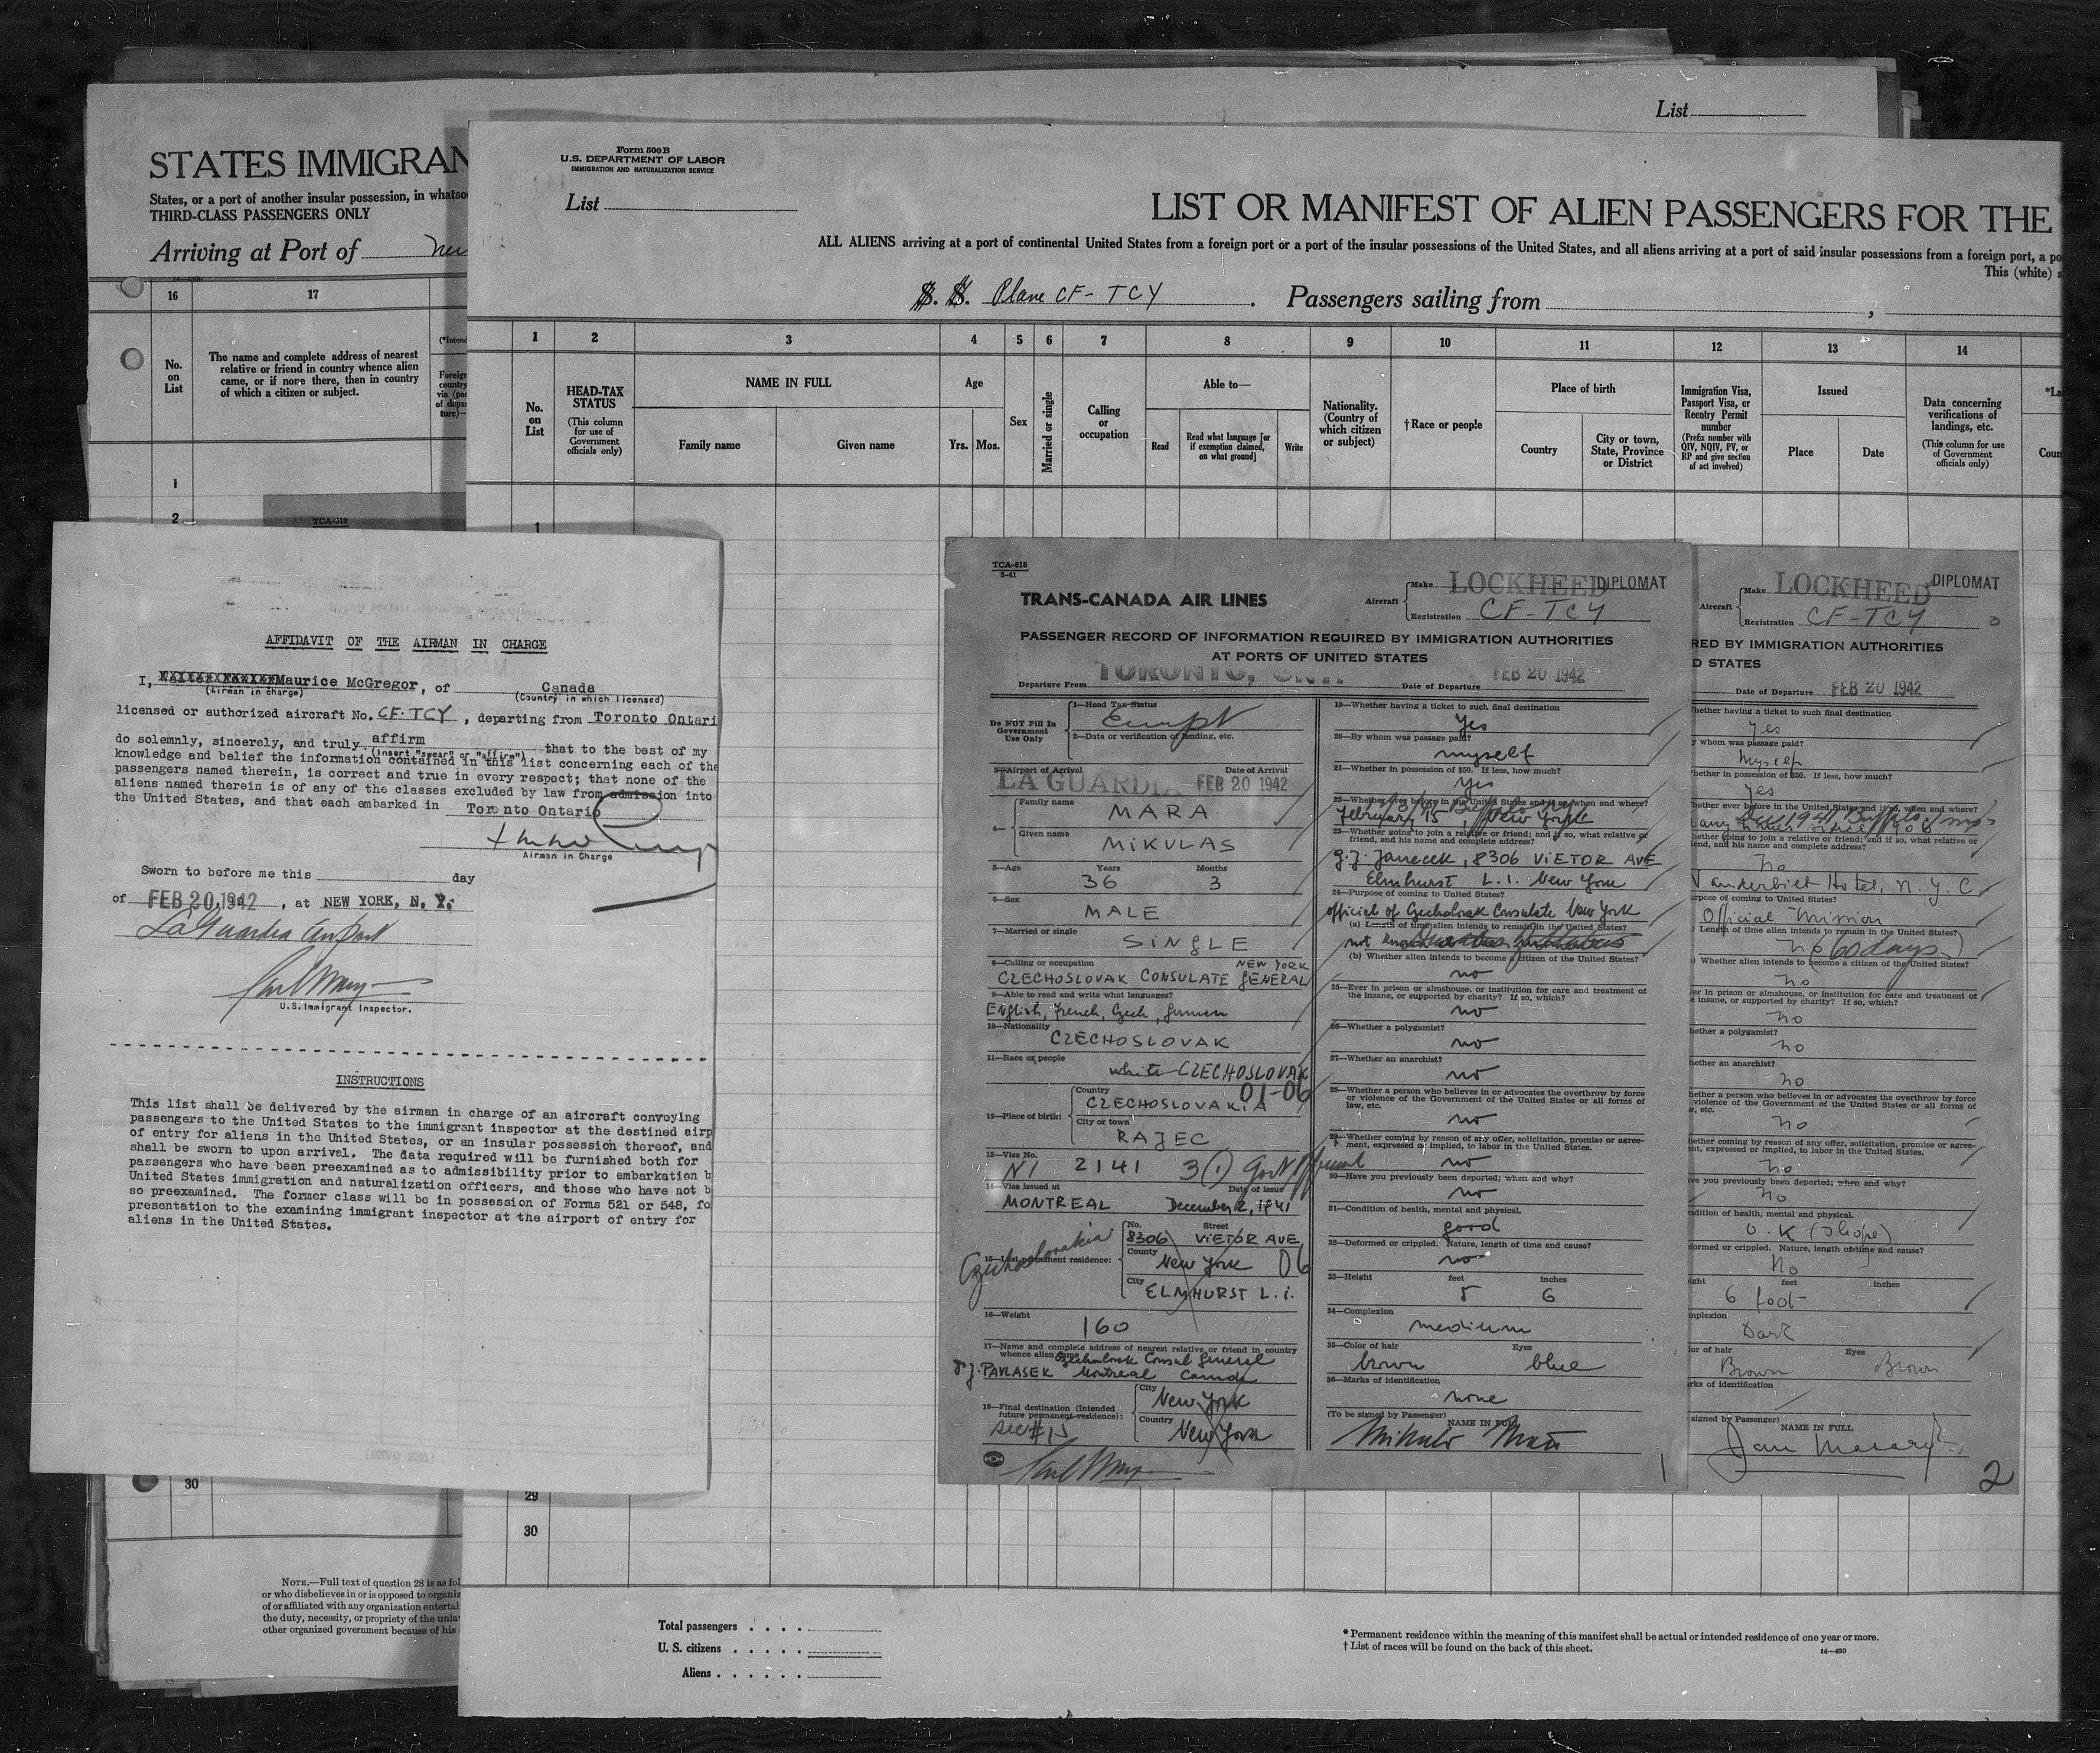 List
STATES IMMIGRAN
States, or a port of another insular possession, in whatso
THIRD-CLASS PASSENGERS ONLY
Arriving at Port of
16 17
No. on List
The name and complete address of nearest
relative or friend in country whence alien
came, or if none there, then in country
of which a citizen or subject.
(*Intend
Foreign
country
via (por
of depar
ture)—
1
2
TCA-318
30
NOTE.—Full text of question 28 is as fol
or who disbelieves in or is opposed to organiz
of or affiliated with any organization entertai
the duty, necessity, or propriety of the unla
other organized government because of his
Form 500 B
U.S. DEPARTMENT OF LABOR
IMMIGRATION AND NATURALIZATION SERVICE
List
LIST OR MANIFEST OF ALIEN PASSENGERS FOR THE
ALL ALIENS arriving at a port of continental United States from a foreign port or a port of the insular possessions of the United States, and all aliens arriving at a port of said insular possessions from a foreign port, a po
This (white) s
S. S. Plane CF-TCY . Passengers sailing from ,
1 2 3 4 5 6 7 8 9 10 11 12 13 14
No. on List
HEAD-TAX STATUS
(This column for use of Government officials only)
NAME IN FULL
Family name Given name
Age
Yrs. Mos.
Sex
Married or single
Calling or occupation
Able to—
Read
Read what language [or if exemption claimed, on what ground]
Write
Nationality. (Country of which citizen or subject)
†Race or people
Place of birth
Country
City or town, State, Province or District
Immigration Visa, Passport Visa, or Reentry Permit number
(Prefix number with QIV, NQIV, PV, or RP and give section of act involved)
Issued
Place Date
Data concerning verifications of landings, etc.
(This column for use of Government officials only)
*La
Coun
1
29
30
Total passengers . . . .
U. S. citizens . . . . .
Aliens . . . . . .
* Permanent residence within the meaning of this manifest shall be actual or intended residence of one year or more.
† List of races will be found on the back of this sheet.
AFFIDAVIT OF THE AIRMAN IN CHARGE
I, Maurice McGregor, of Canada
(Airman in charge) (Country in which licensed)
licensed or authorized aircraft No. CF-TCY, departing from Toronto Ontari
do solemnly, sincerely, and truly affirm that to the best of my
(insert "swear" or "affirm")
knowledge and belief the information contained in this list concerning each of the
passengers named therein, is correct and true in every respect; that none of the
aliens named therein is of any of the classes excluded by law from admission into
the United States, and that each embarked in Toronto Ontario
Airman in Charge
Sworn to before me this day
of FEB 20 1942, at NEW YORK, N. Y.
LaGuardia Airport
U.S. Immigrant Inspector.
INSTRUCTIONS
This list shall be delivered by the airman in charge of an aircraft convoying
passengers to the United States to the immigrant inspector at the destined airp
of entry for aliens in the United States, or an insular possession thereof, and
shall be sworn to upon arrival. The data required will be furnished both for
passengers who have been preexamined as to admissibility prior to embarkation b
United States immigration and naturalization officers, and those who have not b
so preexamined. The former class will be in possession of Forms 521 or 548, fo
presentation to the examining immigrant inspector at the airport of entry for
aliens in the United States.
TCA-318
5-41
TRANS-CANADA AIR LINES
Aircraft Make LOCKHEED DIPLOMAT
Registration CF-TCY
PASSENGER RECORD OF INFORMATION REQUIRED BY IMMIGRATION AUTHORITIES
AT PORTS OF UNITED STATES
Departure From TORONTO, ONT. Date of Departure FEB 20 1942
Do NOT Fill In
Government
Use Only
1—Head Tax Status
Exempt
2—Data or verification of landing, etc.
3—Airport of Arrival Date of Arrival
LA GUARDIA FEB 20 1942
4— Family name MARA
Given name MIKULAS
5—Age Years Months
36 3
6—Sex
MALE
7—Married or single
SINGLE
8—Calling or occupation NEW YORK
CZECHOSLOVAK CONSULATE GENERAL
9—Able to read and write what languages?
English, French, Czech, German
10—Nationality
CZECHOSLOVAK
11—Race or people
white CZECHOSLOVAK
01-06
12—Place of birth: Country
CZECHOSLOVAKIA
City or town
RAJEC
13—Visa No.
NI 2141 3(1) Gov't Official
14—Visa issued at Date of issue
MONTREAL December 2, 1941
15—Last permanent residence: Czechoslovakia
No. Street
8306 VIETOR AVE
County
New York 06
City
ELMHURST L.I.
16—Weight
160
17—Name and complete address of nearest relative or friend in country
whence alien came
Czechoslovak Consul General
PAVLASEK Montreal Canada
18—Final destination (Intended
future permanent residence):
City New York
Country New York
See #15
19—Whether having a ticket to such final destination
Yes
20—By whom was passage paid?
myself
21—Whether in possession of $50. If less, how much?
Yes
22—Whether ever before in the United States and if so, when and where?
February 15, New York
23—Whether going to join a relative or friend; and if so, what relative or
friend, and his name and complete address?
G.J. Janecek, 8306 VIETOR AVE
Elmhurst L.I. New York
24—Purpose of coming to United States?
official of Czechoslovak Consulate New York
(a) Length of time alien intends to remain in the United States?
not
(b) Whether alien intends to become a citizen of the United States?
no
25—Ever in prison or almshouse, or institution for care and treatment of
the insane, or supported by charity? If so, which?
no
26—Whether a polygamist?
no
27—Whether an anarchist?
no
28—Whether a person who believes in or advocates the overthrow by force
or violence of the Government of the United States or all forms of
law, etc.
no
29—Whether coming by reason of any offer, solicitation, promise or agree-
ment, expressed or implied, to labor in the United States.
no
30—Have you previously been deported; when and why?
no
31—Condition of health, mental and physical.
good
32—Deformed or crippled. Nature, length of time and cause?
no
33—Height feet inches
5 6
34—Complexion
medium
35—Color of hair Eyes
brown blue
36—Marks of identification
none
(To be signed by Passenger) NAME IN FULL
1
Aircraft Make LOCKHEED DIPLOMAT
Registration CF-TCY
RED BY IMMIGRATION AUTHORITIES
D STATES
Date of Departure FEB 20 1942
hether having a ticket to such final destination
yes
y whom was passage paid?
Myself
hether in possession of $50. If less, how much?
yes
hether ever before in the United States and if so, when and where?
Dec 1941 Buffalo
many times since 1906
hether going to join a relative or friend; and if so, what relative or
iend, and his name and complete address?
no
Vanderbilt Hotel, N.Y.C.
rpose of coming to United States?
Official Mission
Length of time alien intends to remain in the United States?
no (60 days)
) Whether alien intends to become a citizen of the United States?
no
er in prison or almshouse, or institution for care and treatment of
e insane, or supported by charity? If so, which?
no
hether a polygamist?
no
hether an anarchist?
no
hether a person who believes in or advocates the overthrow by force
violence of the Government of the United States or all forms of
w, etc.
no
hether coming by reason of any offer, solicitation, promise or agree-
ent, expressed or implied, to labor in the United States.
no
ve you previously been deported; when and why?
no
ndition of health, mental and physical.
O.K (I hope)
formed or crippled. Nature, length of time and cause?
No
ight feet inches
6 foot
mplexion
Dark
lor of hair Eyes
Brown Brown
rks of identification
signed by Passenger) NAME IN FULL
Jan Masaryk
2